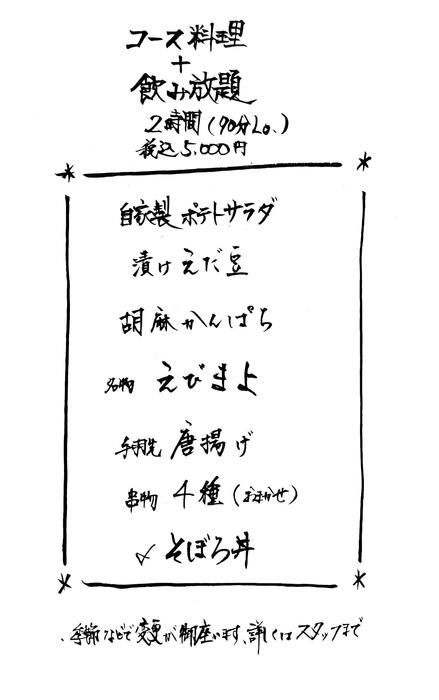 コース料理
+
飲み放題
2時間(90分Lo.)
税込5.000円
自家製 ポテトサラダ
漬けえだ豆
胡麻かんぱち
名物 えびまよ
手羽先 唐揚げ
串物 4種(おまかせ)
〆 そぼろ丼
・季節などで変更が御座います、詳しくはスタッフまで